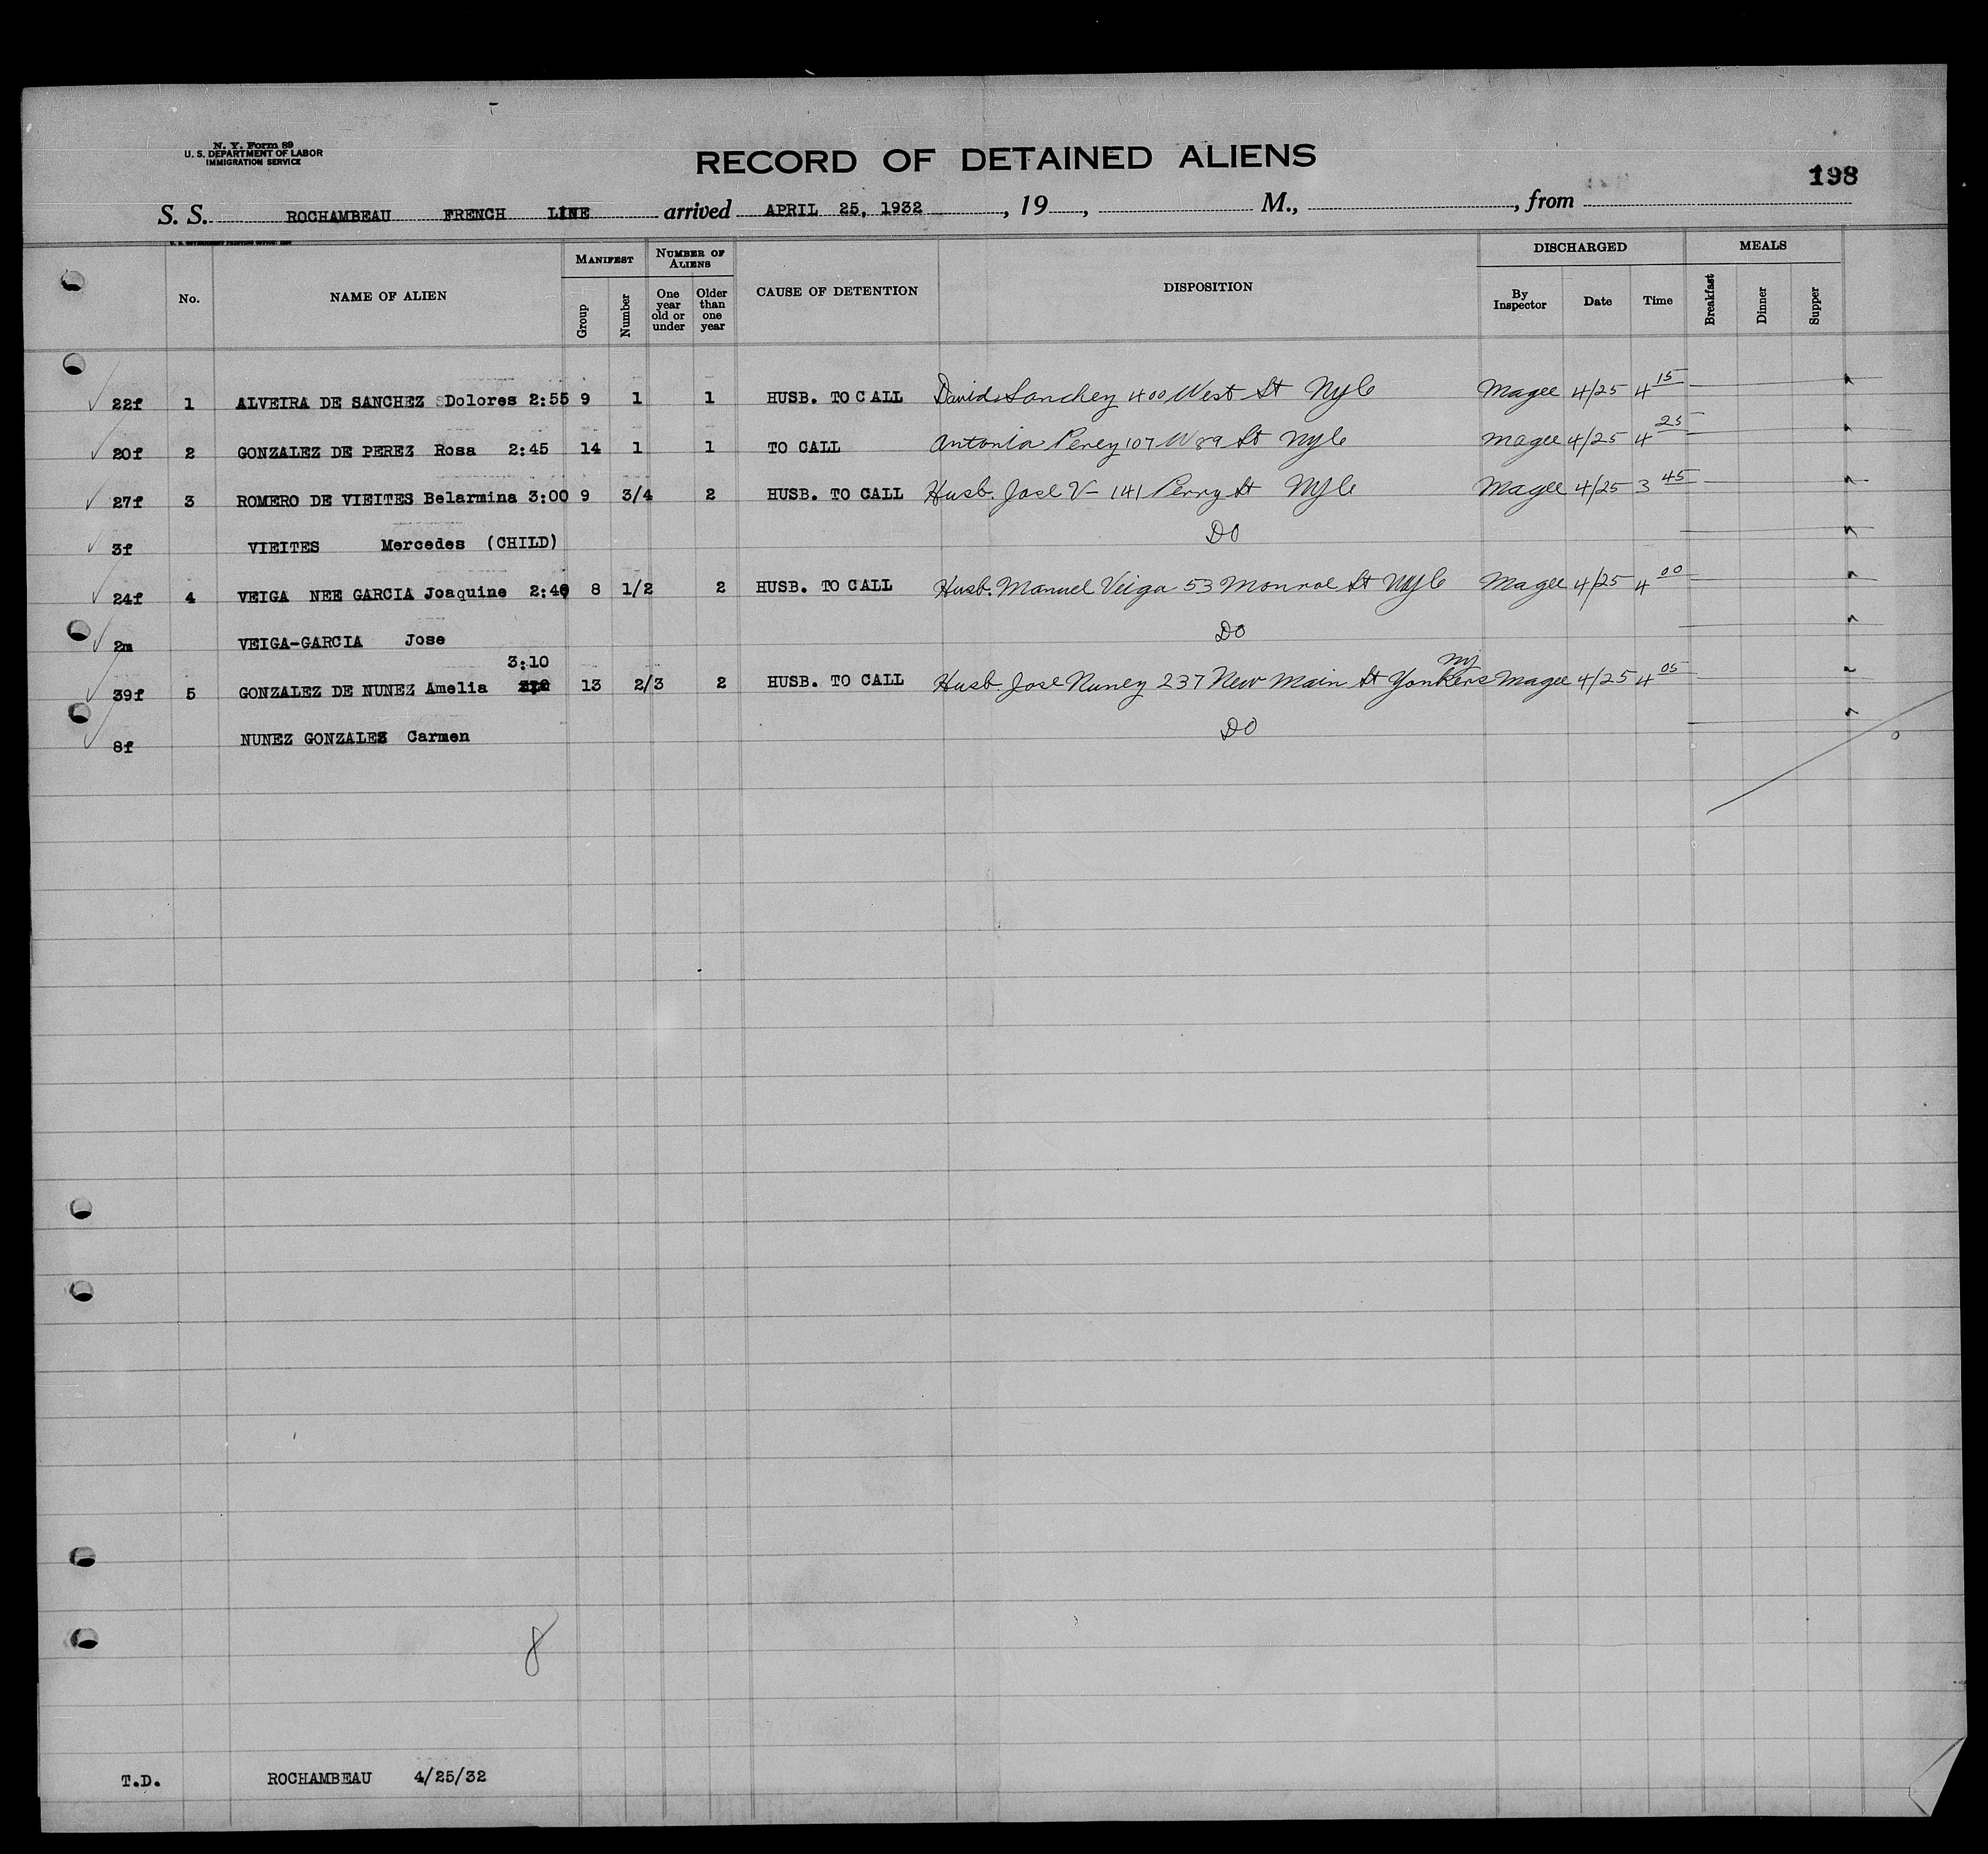 N. Y. Form 89
U. S. DEPARTMENT OF LABOR
IMMIGRATION SERVICE
RECORD OF DETAINED ALIENS
198
S. S. ROCHAMBEAU FRENCH LINE arrived APRIL 25, 1932, 19, M., , from
No. NAME OF ALIEN MANIFEST Group Number NUMBER OF ALIENS One year old or under Older than one year CAUSE OF DETENTION DISPOSITION DISCHARGED By Inspector Date Time MEALS Breakfast Dinner Supper
22f 1 ALVEIRA DE SANCHEZ Dolores 2:55 9 1 1 HUSB. TO CALL David Sanchez 400 West St NYC Magee 4/25 4 15
20f 2 GONZALEZ DE PEREZ Rosa 2:45 14 1 1 TO CALL Antonio Perez 107 W 89 St NYC Magee 4/25 4 25
27f 3 ROMERO DE VIEITES Belarmina 3:00 9 3/4 2 HUSB. TO CALL Husb. Jose V- 141 Perry St NYC Magee 4/25 3 45
3f VIEITES Mercedes (CHILD) DO
24f 4 VEIGA NEE GARCIA Joaquine 2:40 8 1/2 2 HUSB. TO CALL Husb. Manuel Veiga 53 Monroe St NYC Magee 4/25 4 00
2m VEIGA-GARCIA Jose DO
3:10
39f 5 GONZALEZ DE NUNEZ Amelia 13 2/3 2 HUSB. TO CALL Husb. Jose Nunez 237 New Main St Yonkers NY Magee 4/25 4 05
8f NUNEZ GONZALEZ Carmen DO
8
T.D. ROCHAMBEAU 4/25/32